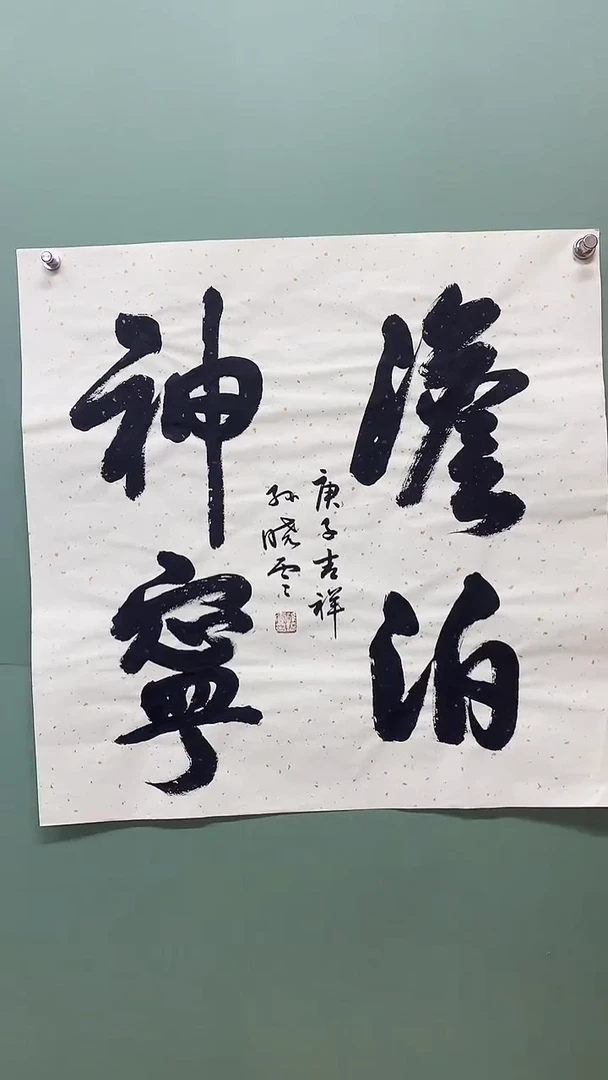 澹泊
神寧
庚子吉祥
孙晓云